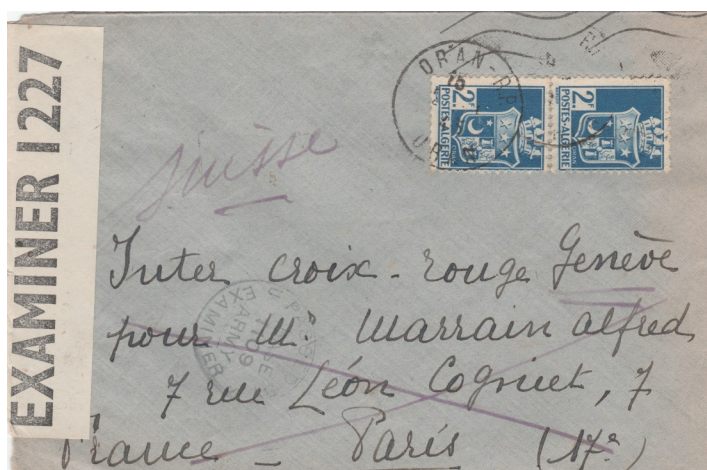 EXAMINER 1227
ORAN-R.P.
2F
POSTES-ALGERIE
2F
POSTES-ALGERIE
Suisse
Inter croix-rouge Genève
pour Mr Marrain alfred
7 rue Léon Cogniet, 7
France - Paris (17e)
U
ARMY
EXAMINER